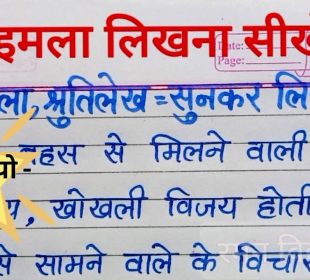 इमला लिखना सीख
Date:
Page:
ला, श्रुतिलेख = सुनकर लि
यो -
हस से मिलने वाली
, खोखली विजय होती
से सामने वाले के विचार